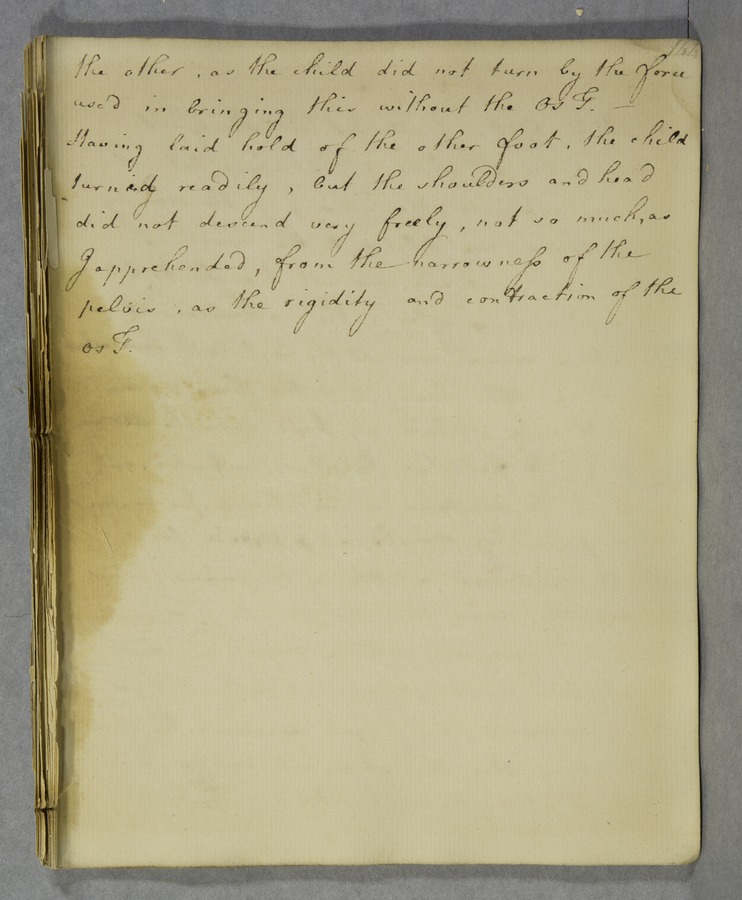 the other, as the child did not turn by the force
used in bringing this without the Os T. —
Having laid hold of the other foot, the child
turned readily, but the shoulders and head
did not descend very freely, not so much, as
I apprehended, from the narrowness of the
pelvis, as the rigidity and contraction of the
os T.